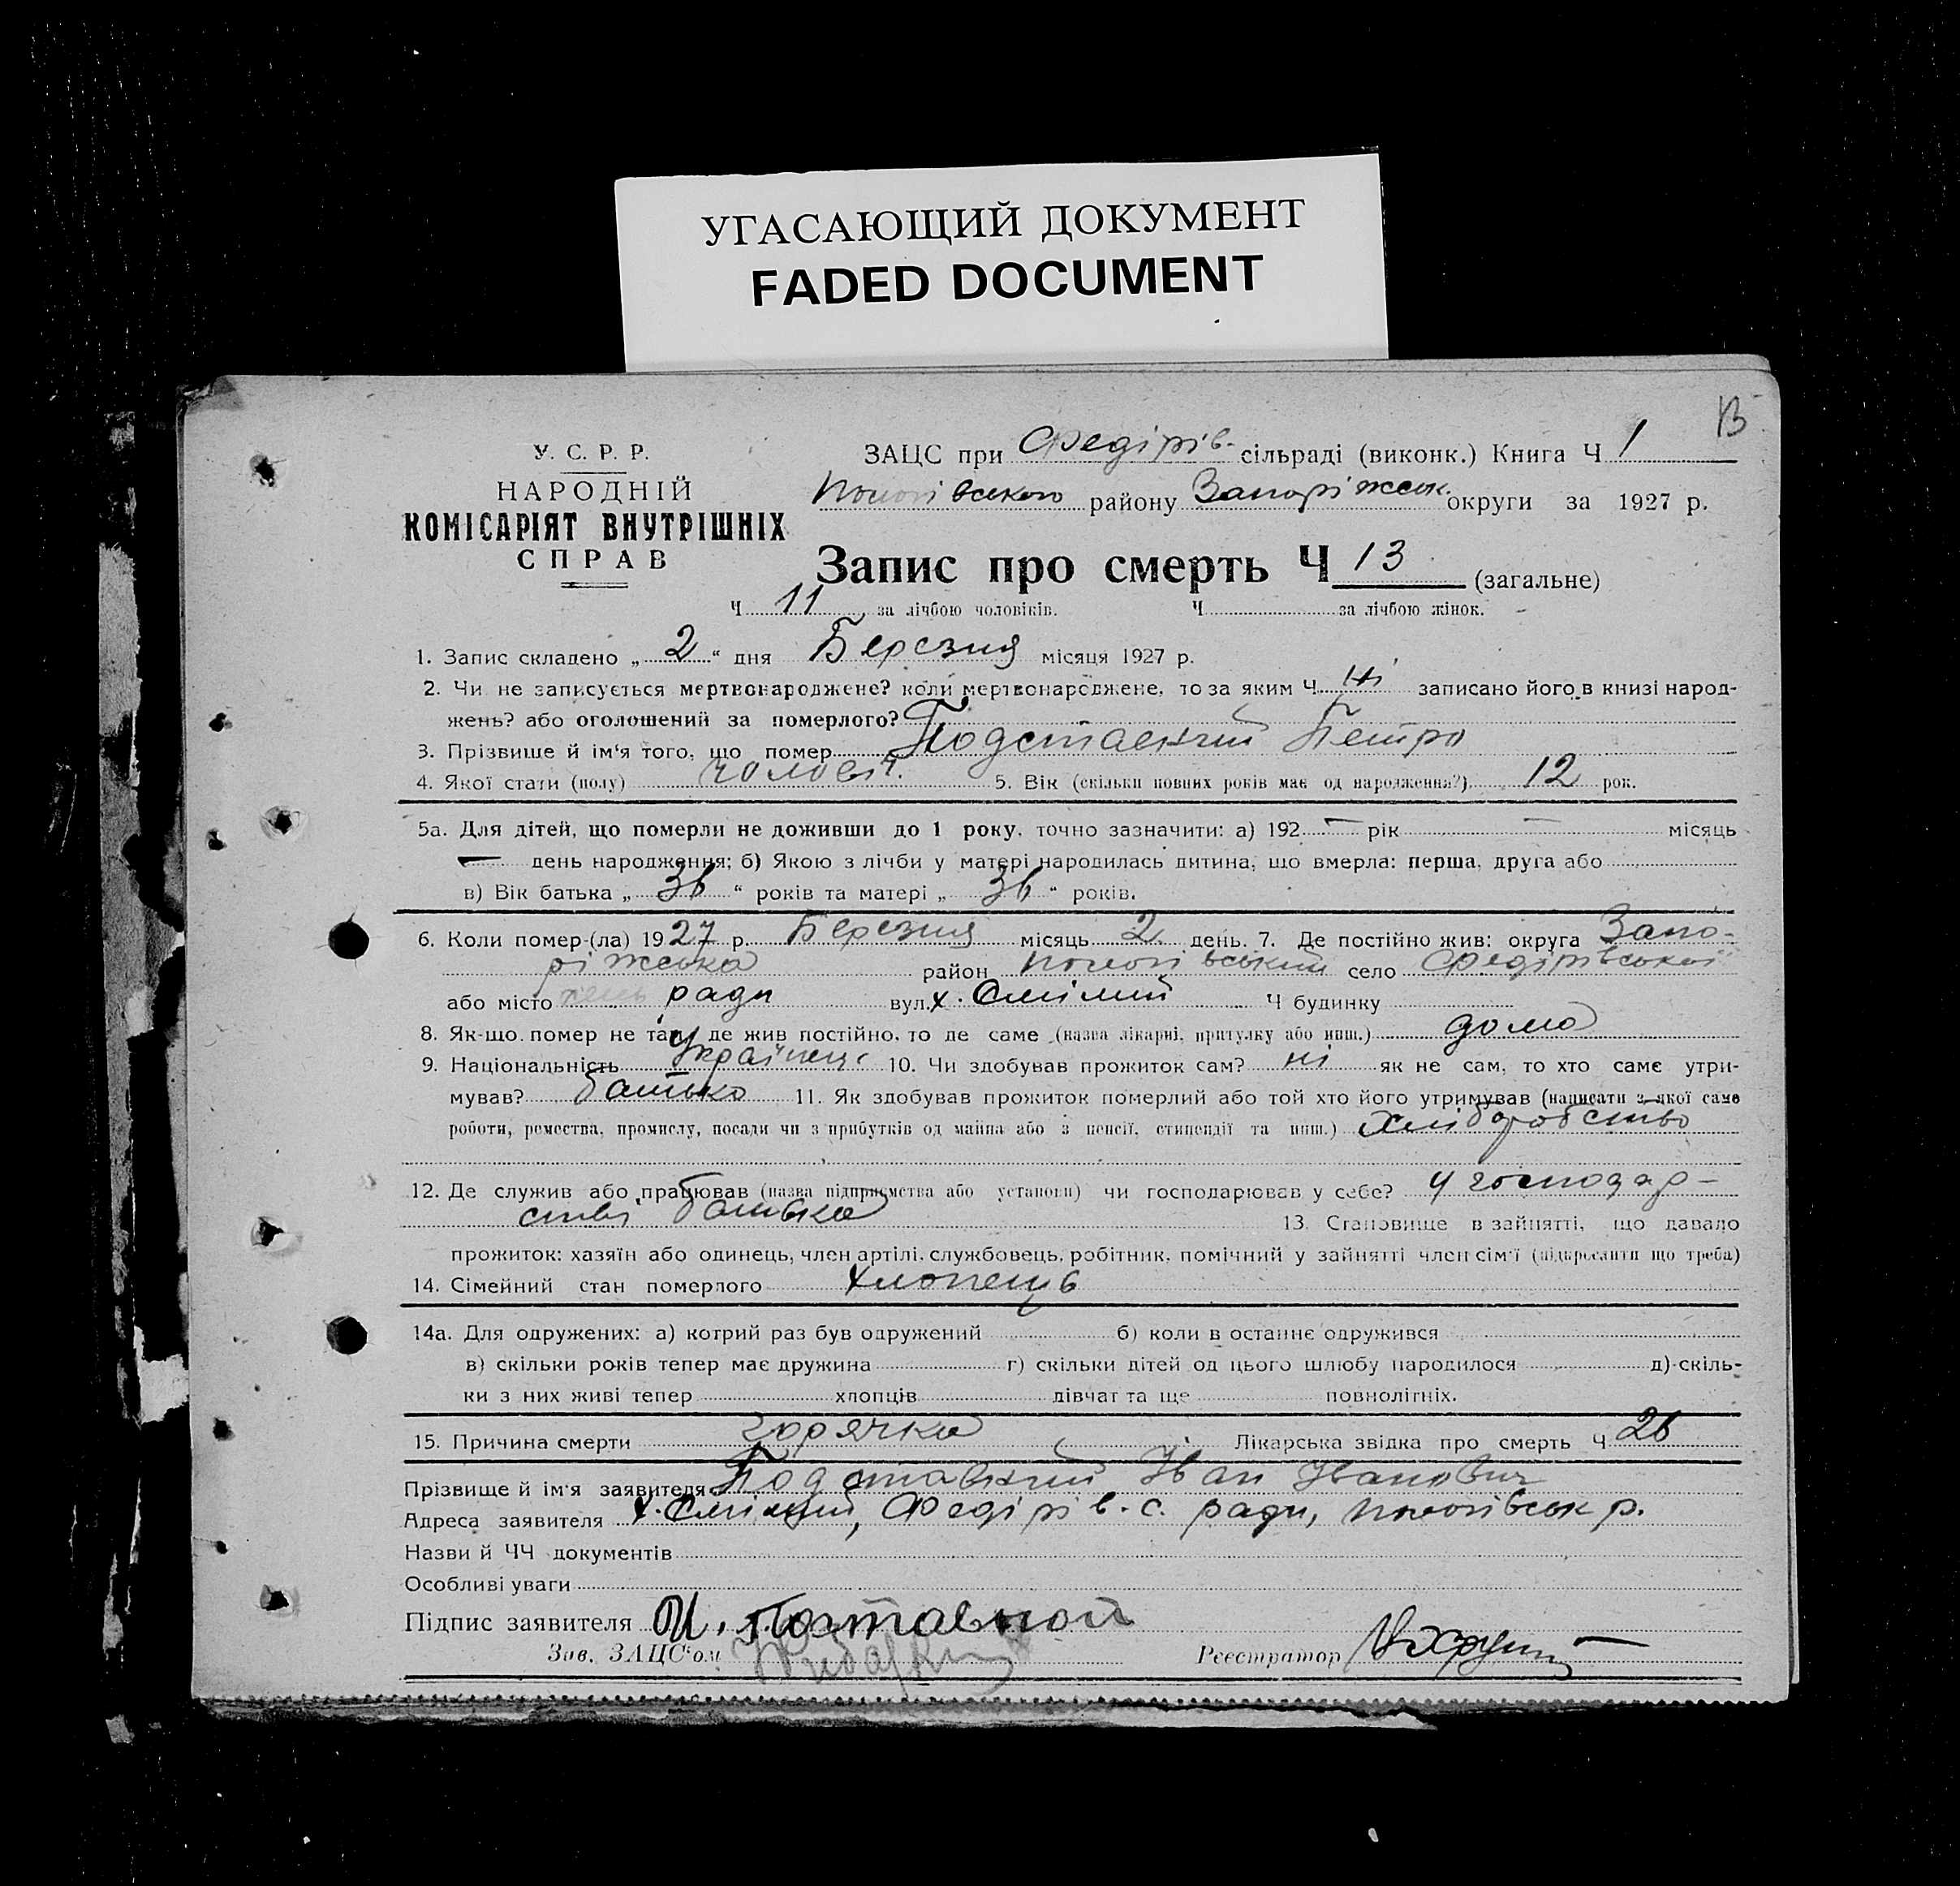 УГАСАЮЩИЙ ДОКУМЕНТ
FADED DOCUMENT
13
У. С. Р. Р.
НАРОДНІЙ
КОМІСАРІЯТ ВНУТРІШНІХ
СПРАВ
ЗАЦС при Федірів. сільраді (виконк.) Книга Ч 1
Пологівського району Запоріжськ. округи за 1927 р.
Запис про смерть Ч 13 (загальне)
Ч 11 за лічбою чоловіків. Ч за лічбою жінок.
1. Запис складено „ 2 “ дня Березня місяця 1927 р.
2. Чи не записується мертвонароджене? коли мертвонароджене, то за яким Ч ні записано його в книзі народ-
жень? або оголошений за померлого?
3. Прізвище й ім'я того, що помер Подставкий Петро
4. Якої стати (полу) чоловіч. 5. Вік (скільки повних років має од народження?) 12 рок.
5а. Для дітей, що померли не доживши до 1 року, точно зазначити: а) 192 — рік — місяць
— день народження; б) Якою з лічби у матері народилась дитина, що вмерла: перша, друга або
в) Вік батька „ 36 “ років та матері „ 36 “ років.
6. Коли помер-(ла) 1927 р. Березня місяць 2 день. 7. Де постійно жив: округа Запо-
ріжська район Пологівський село Федірівської
або місто ради вул. х. Смілий Ч будинку
8. Як-що помер не там, де жив постійно, то де саме (назва лікарні, притулку або инш.) дома
9. Національність українець 10. Чи здобував прожиток сам? ні як не сам, то хто саме утри-
мував? батько 11. Як здобував прожиток померлий або той хто його утримував (написати з якої саме
роботи, ремества, промислу, посади чи з прибутків од майна або з пенсії, стипендії та инш.) хліборобство
12. Де служив або працював (назва підприємства або установи) чи господарював у себе? у господар-
стві батька 13. Становище в зайнятті, що давало
прожиток: хазяїн або одинець, член артілі, службовець, робітник, помічний у зайнятті член сім'ї (підкреслити що треба)
14. Сімейний стан померлого хлопець
14а. Для одружених: а) котрий раз був одружений б) коли в останнє одружився
в) скільки років тепер має дружина г) скільки дітей од цього шлюбу народилося д) скіль-
ки з них живі тепер хлопців дівчат та ще повнолітніх.
15. Причина смерти горячка Лікарська звідка про смерть Ч 26
Прізвище й ім'я заявителя Подставкий Іван Іванович
Адреса заявителя х. Смілий, Федірів. с. ради, Пологівськ р.
Назви й ЧЧ документів
Особливі уваги
Підпис заявителя И.
Зав. ЗАЦС'ом
Реєстратор